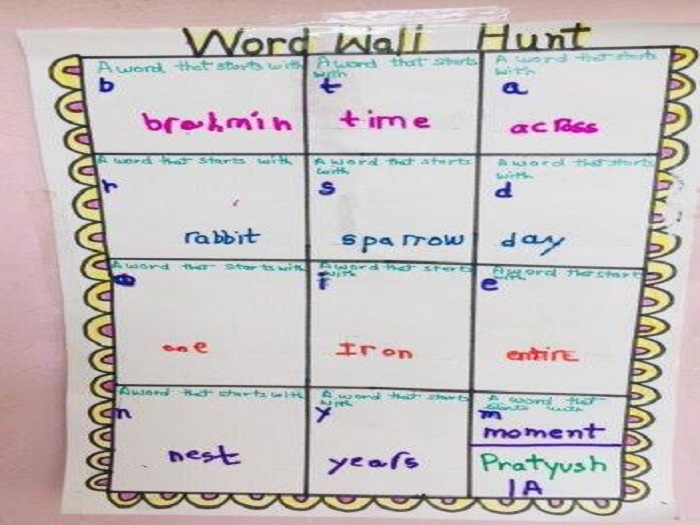 Word Wall Hunt
A word that starts with
b
brahmin
A word that starts
with
t
time
A word that starts
with
a
across
A word that starts with
r
rabbit
A word that starts
with
s
sparrow
A word that starts
with
d
day
A word that starts with
o
one
A word that starts
with
i
Iron
A word that starts
with
e
entire
A word that starts with
n
nest
A word that starts
with
y
years
A word that
starts with
m
moment
Pratyush
IA